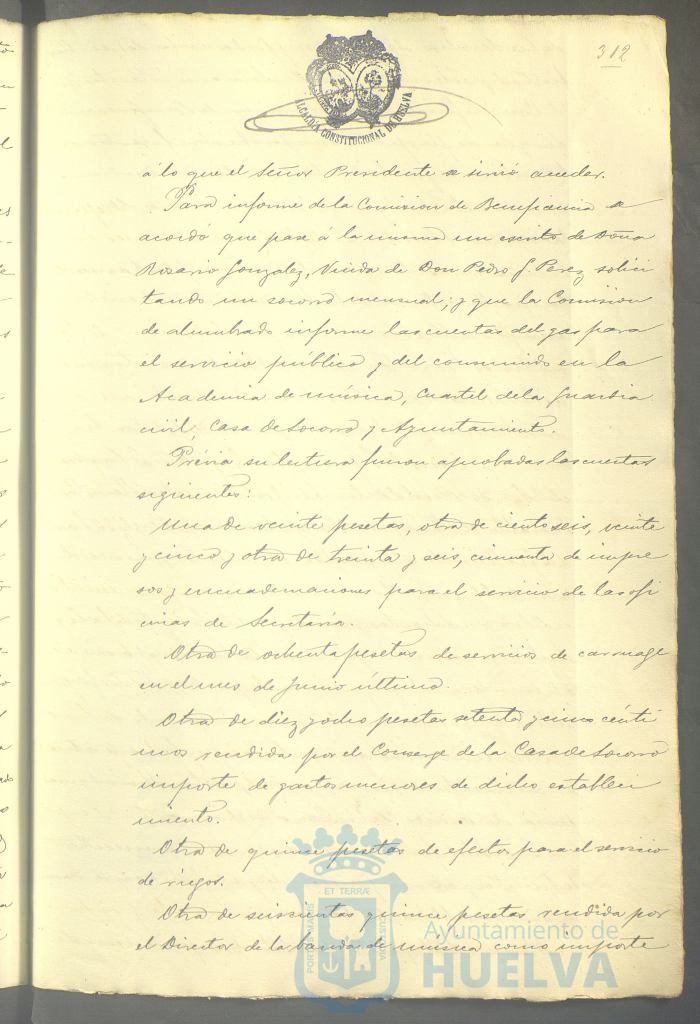 312
ALCALDÍA CONSTITUCIONAL DE HUELVA
á lo que el Señor Presidente se sirvió acceder.
Para informe de la Comision de Beneficencia se
acordó que pase á la misma un escrito de Doña
Rosario Gonzalez, Viuda de Don Pedro J. Perez solici
tando un socorro mensual; y que la Comision
de alumbrado informe las cuentas del gas para
el servicio público y del consumido en la
Academia de música, Cuartel de la Guardia
civil, Casa de Socorro y Ayuntamiento.
Prévia su lectura fueron aprobadas las cuentas
siguientes:
Una de veinte pesetas, otra de ciento seis, veinte
y cinco y otra de treinta y seis, cincuenta de impre
sos y encuadernaciones para el servicio de las ofi
cinas de Secretaría.
Otra de ochenta pesetas de servicios de carruage
en el mes de Junio último.
Otra de diez y ocho pesetas setenta y cinco cénti
mos rendida por el Conserge de la Casa de Socorro
importe de gastos menores de dicho estableci
miento.
Otra de quince pesetas de efectos para el servicio
de riegos.
Otra de seiscientas quince pesetas rendida por
el Director de la banda de música como importe
PORTUS MARIS ET TERRÆ CUSTODIA
Ayuntamiento de
HUELVA